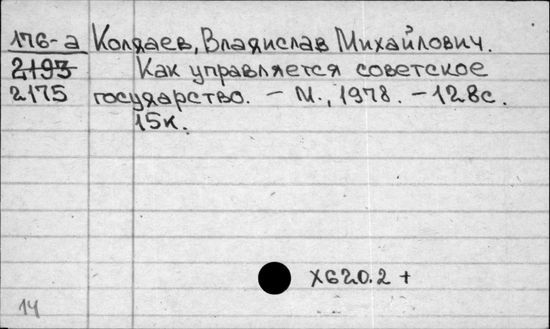 176-а Колдаев, Владислав Михайлович.
2193 Как управляется советское
2175 государство. – М., 1978. – 128с.
15к.
Х620.2 +
14